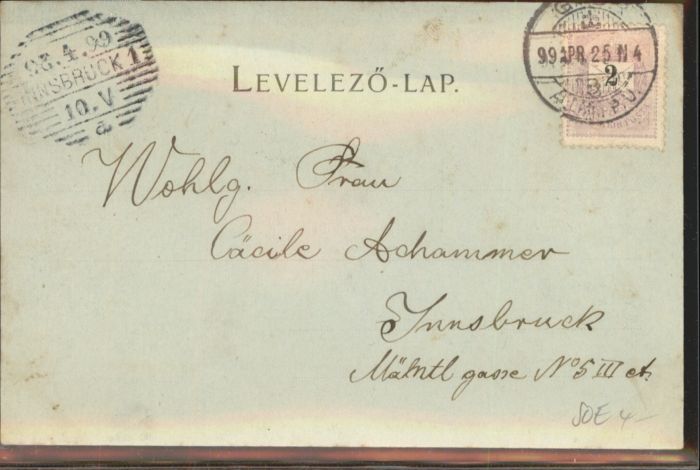 23.4.99
INNSBRUCK 1
10.V
a
99 APR 25 N 4
2
LEVELEZŐ-LAP.
Wohlg. Frau
Cäcilе Achammer
Innsbruck
gasse No 5 III
SOE 4-